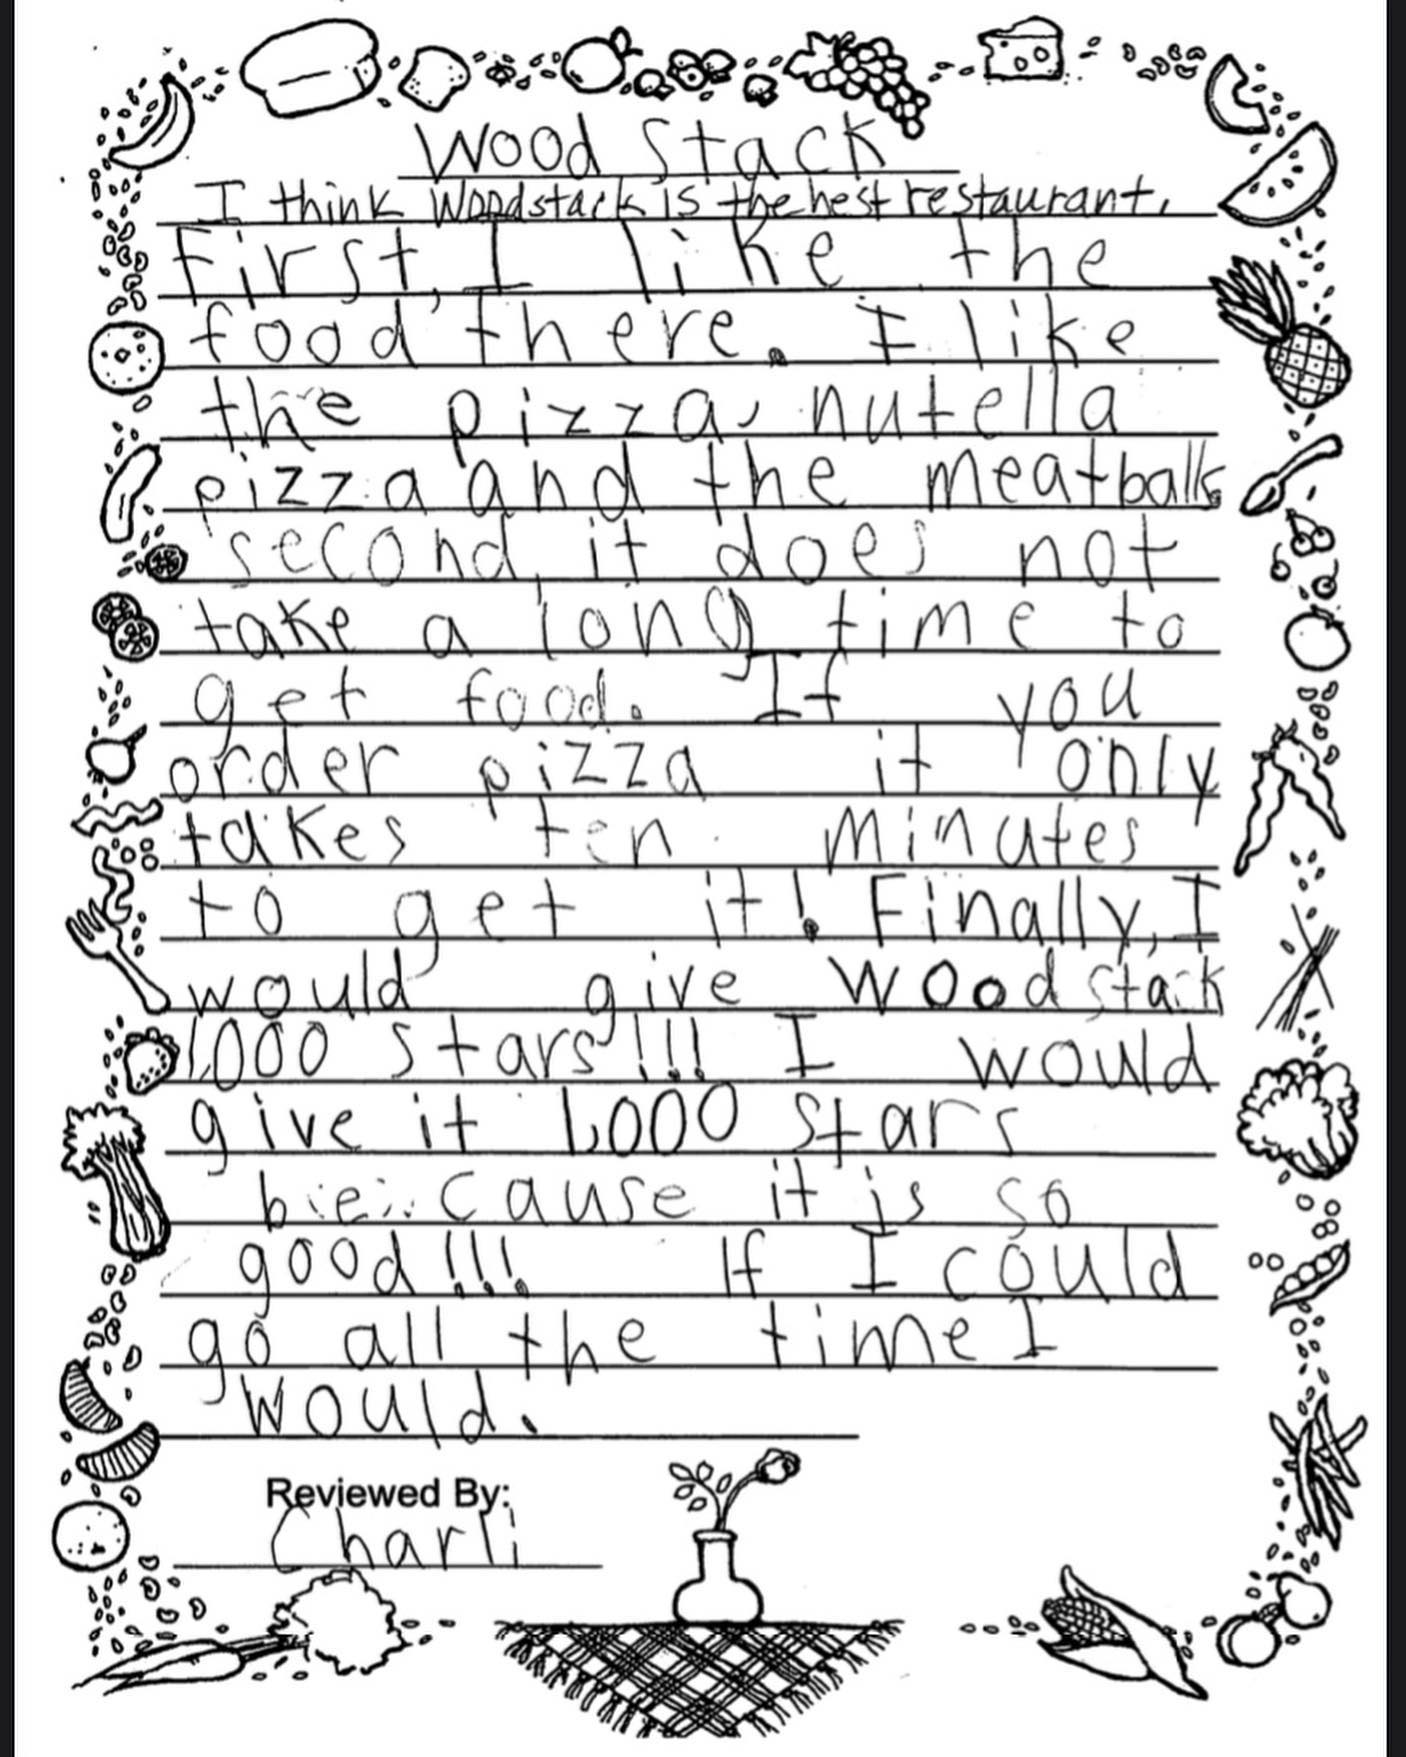 Wood Stack
I think Woodstack is the best restaurant.
First, I like the
food there. I like
the pizza, nutella
pizza and the meatballs.
second, it does not
take a long time to
get food. If you
order pizza it only
takes ten minutes
to get it! Finally, I
would give Woodstack
1,000 stars!!! I would
give it 1,000 stars
because it is so
good!!! If I could
go all the time I
would.
Reviewed By:
Charli